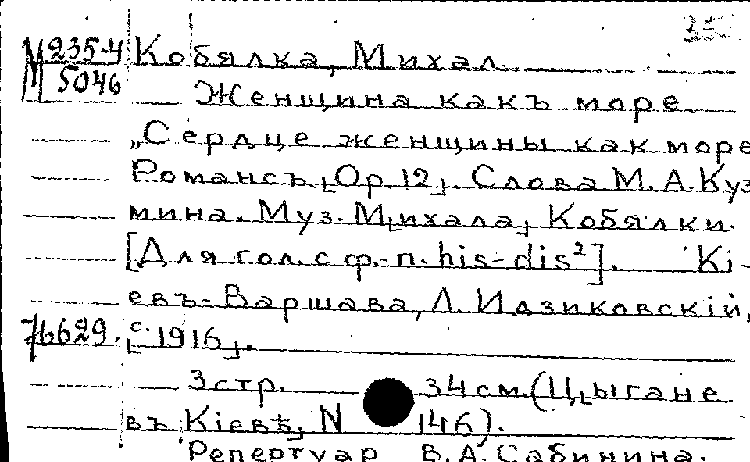 М 235-4 Кобялка, Михал.
5046
Женщина какъ море
„Сердце женщины как море
Романсъ. Ор 12. Слова М. А. Куз
мина. Муз. М[ихала] Кобялки.
[Для гол. с ф.-п. his-dis²]. Кі-
евъ-Варшава, Л. Идзиковскій,
76629. [с. 1916].
3 стр. 34 см. (Цыгане
въ Кіевѣ, N 146).
Репертуар В. А. Сабинина.